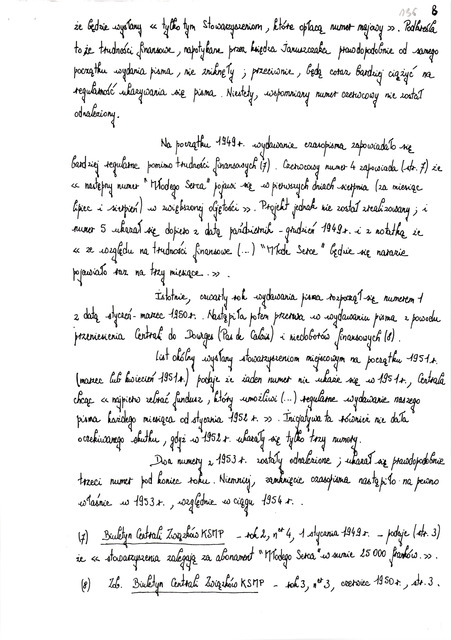 196 8
że będzie wysłany « tylko tym Stowarzyszeniom, które opłacą numer majowy ». Podkreśla
to że trudności finansowe, napotykane przez księdza Januszczaka prawdopodobnie od samego
początku wydania pisma, nie zniknęły ; przeciwnie, będą coraz bardziej ciążyć na
regularność ukazywania się pisma. Niestety, wspomniany numer czerwcowy nie został
odnaleziony.
Na początku 1949 r. wydawanie czasopisma zapowiadało się
bardziej regularne pomimo trudności finansowych (7). Czerwcowy numer 4 zapowiada (str. 7) że
« następny numer "Młodego Serca" pojawi się w pierwszych dniach sierpnia (za miesiąc
lipiec i sierpień) w zwiększonej objętości ». Projekt jednak nie został zrealizowany ; i
numer 5 ukazał się dopiero z datą październik - grudzień 1949 r. i z notatką że
« ze względu na trudności finansowe (...) "Młode Serce" będzie się narazie
pojawiało raz na trzy miesiące. ».
Istotnie, czwarty rok wydawania pisma rozpoczął się numerem 1
z datą styczeń - marzec 1950 r. Nastąpiła potem przerwa w wydawaniu pisma z powodu
przeniesienia Centrali do Dourges (Pas de Calais) i niedoborów finansowych (8).
List okólny wysłany stowarzyszeniom miejscowym na początku 1951 r.
(marzec lub kwiecień 1951 r.) podaje że żaden numer nie ukaże się w 1951 r., Centrala
chcąc « najpierw zebrać fundusz, który umożliwi (...) regularne wydawanie naszego
pisma każdego miesiąca od stycznia 1952 r. ». Inicjatywa ta również nie dała
oczekiwanego skutku, gdyż w 1952 r. ukazały się tylko trzy numery.
Dwa numery z 1953 r. zostały odnalezione ; ukazał się prawdopodobnie
trzeci numer pod koniec roku. Niemniej, zamknięcie czasopisma nastąpiło na pewno
właśnie w 1953 r., względnie w ciągu 1954 r.
(7) Biuletyn Centrali Związków KSMP - rok 2, n° 4, 1 stycznia 1949 r. - podaje (str. 3)
że « stowarzyszenia zalegają za abonament "Młodego Serca" w sumie 25 000 franków. ».
(8) Zob. Biuletyn Centrali Związków KSMP - rok 3, n° 3, czerwiec 1950 r., str. 3.